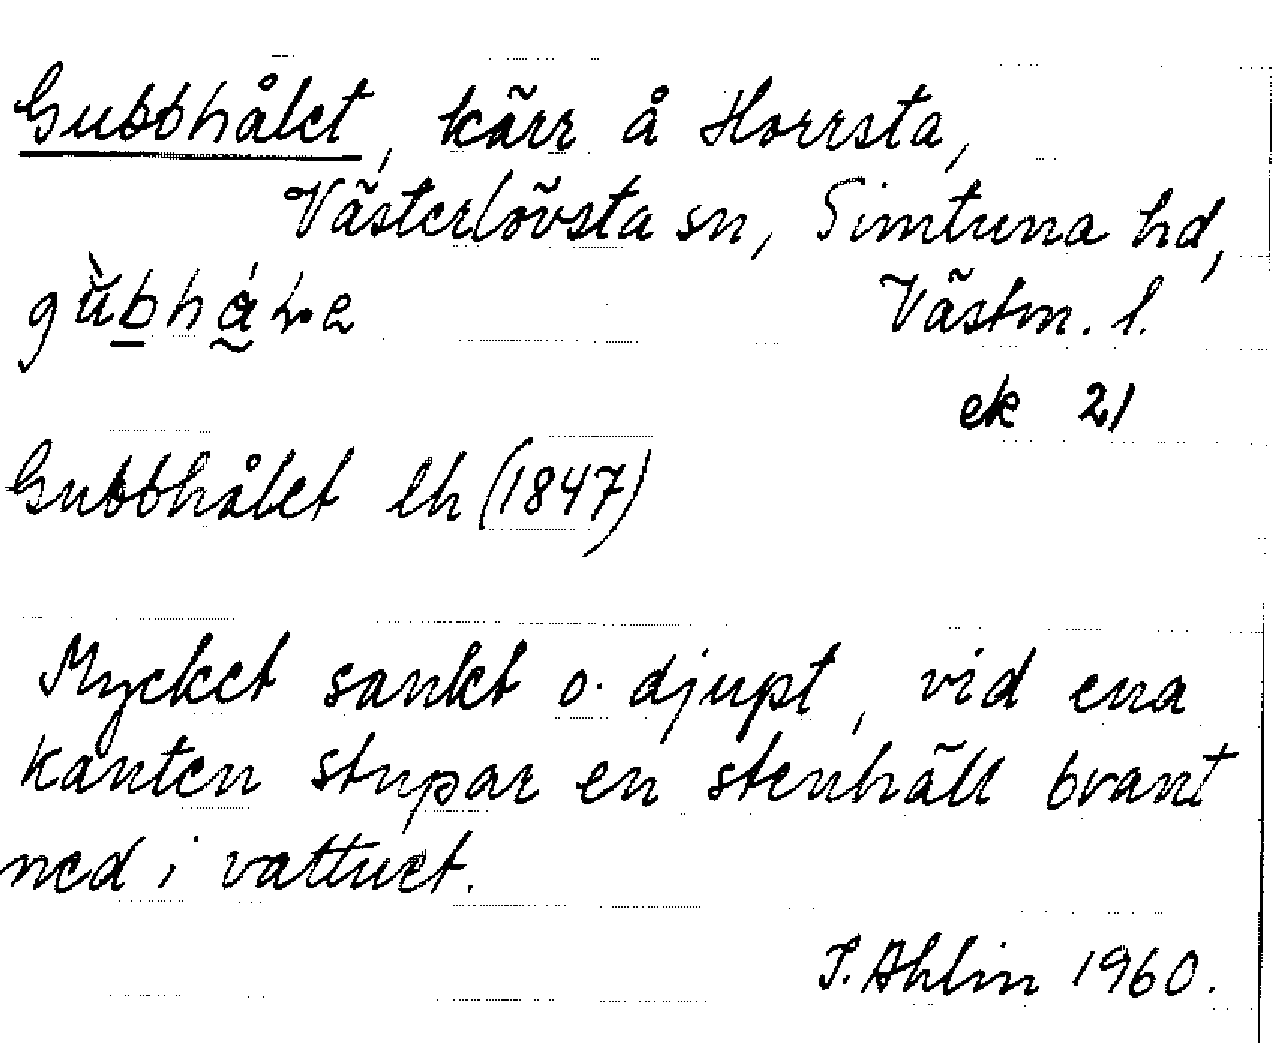 Gubbhålet, kärr å Horrsta,
Västerlövsta sn, Simtuna hd,
Västm. l.
ek 21
Gubbhålet lh (1847)
Mycket sankt o. djupt, vid ena
kanten stupar en stenhäll brant
ned i vattnet.
I. Ahlin 1960.